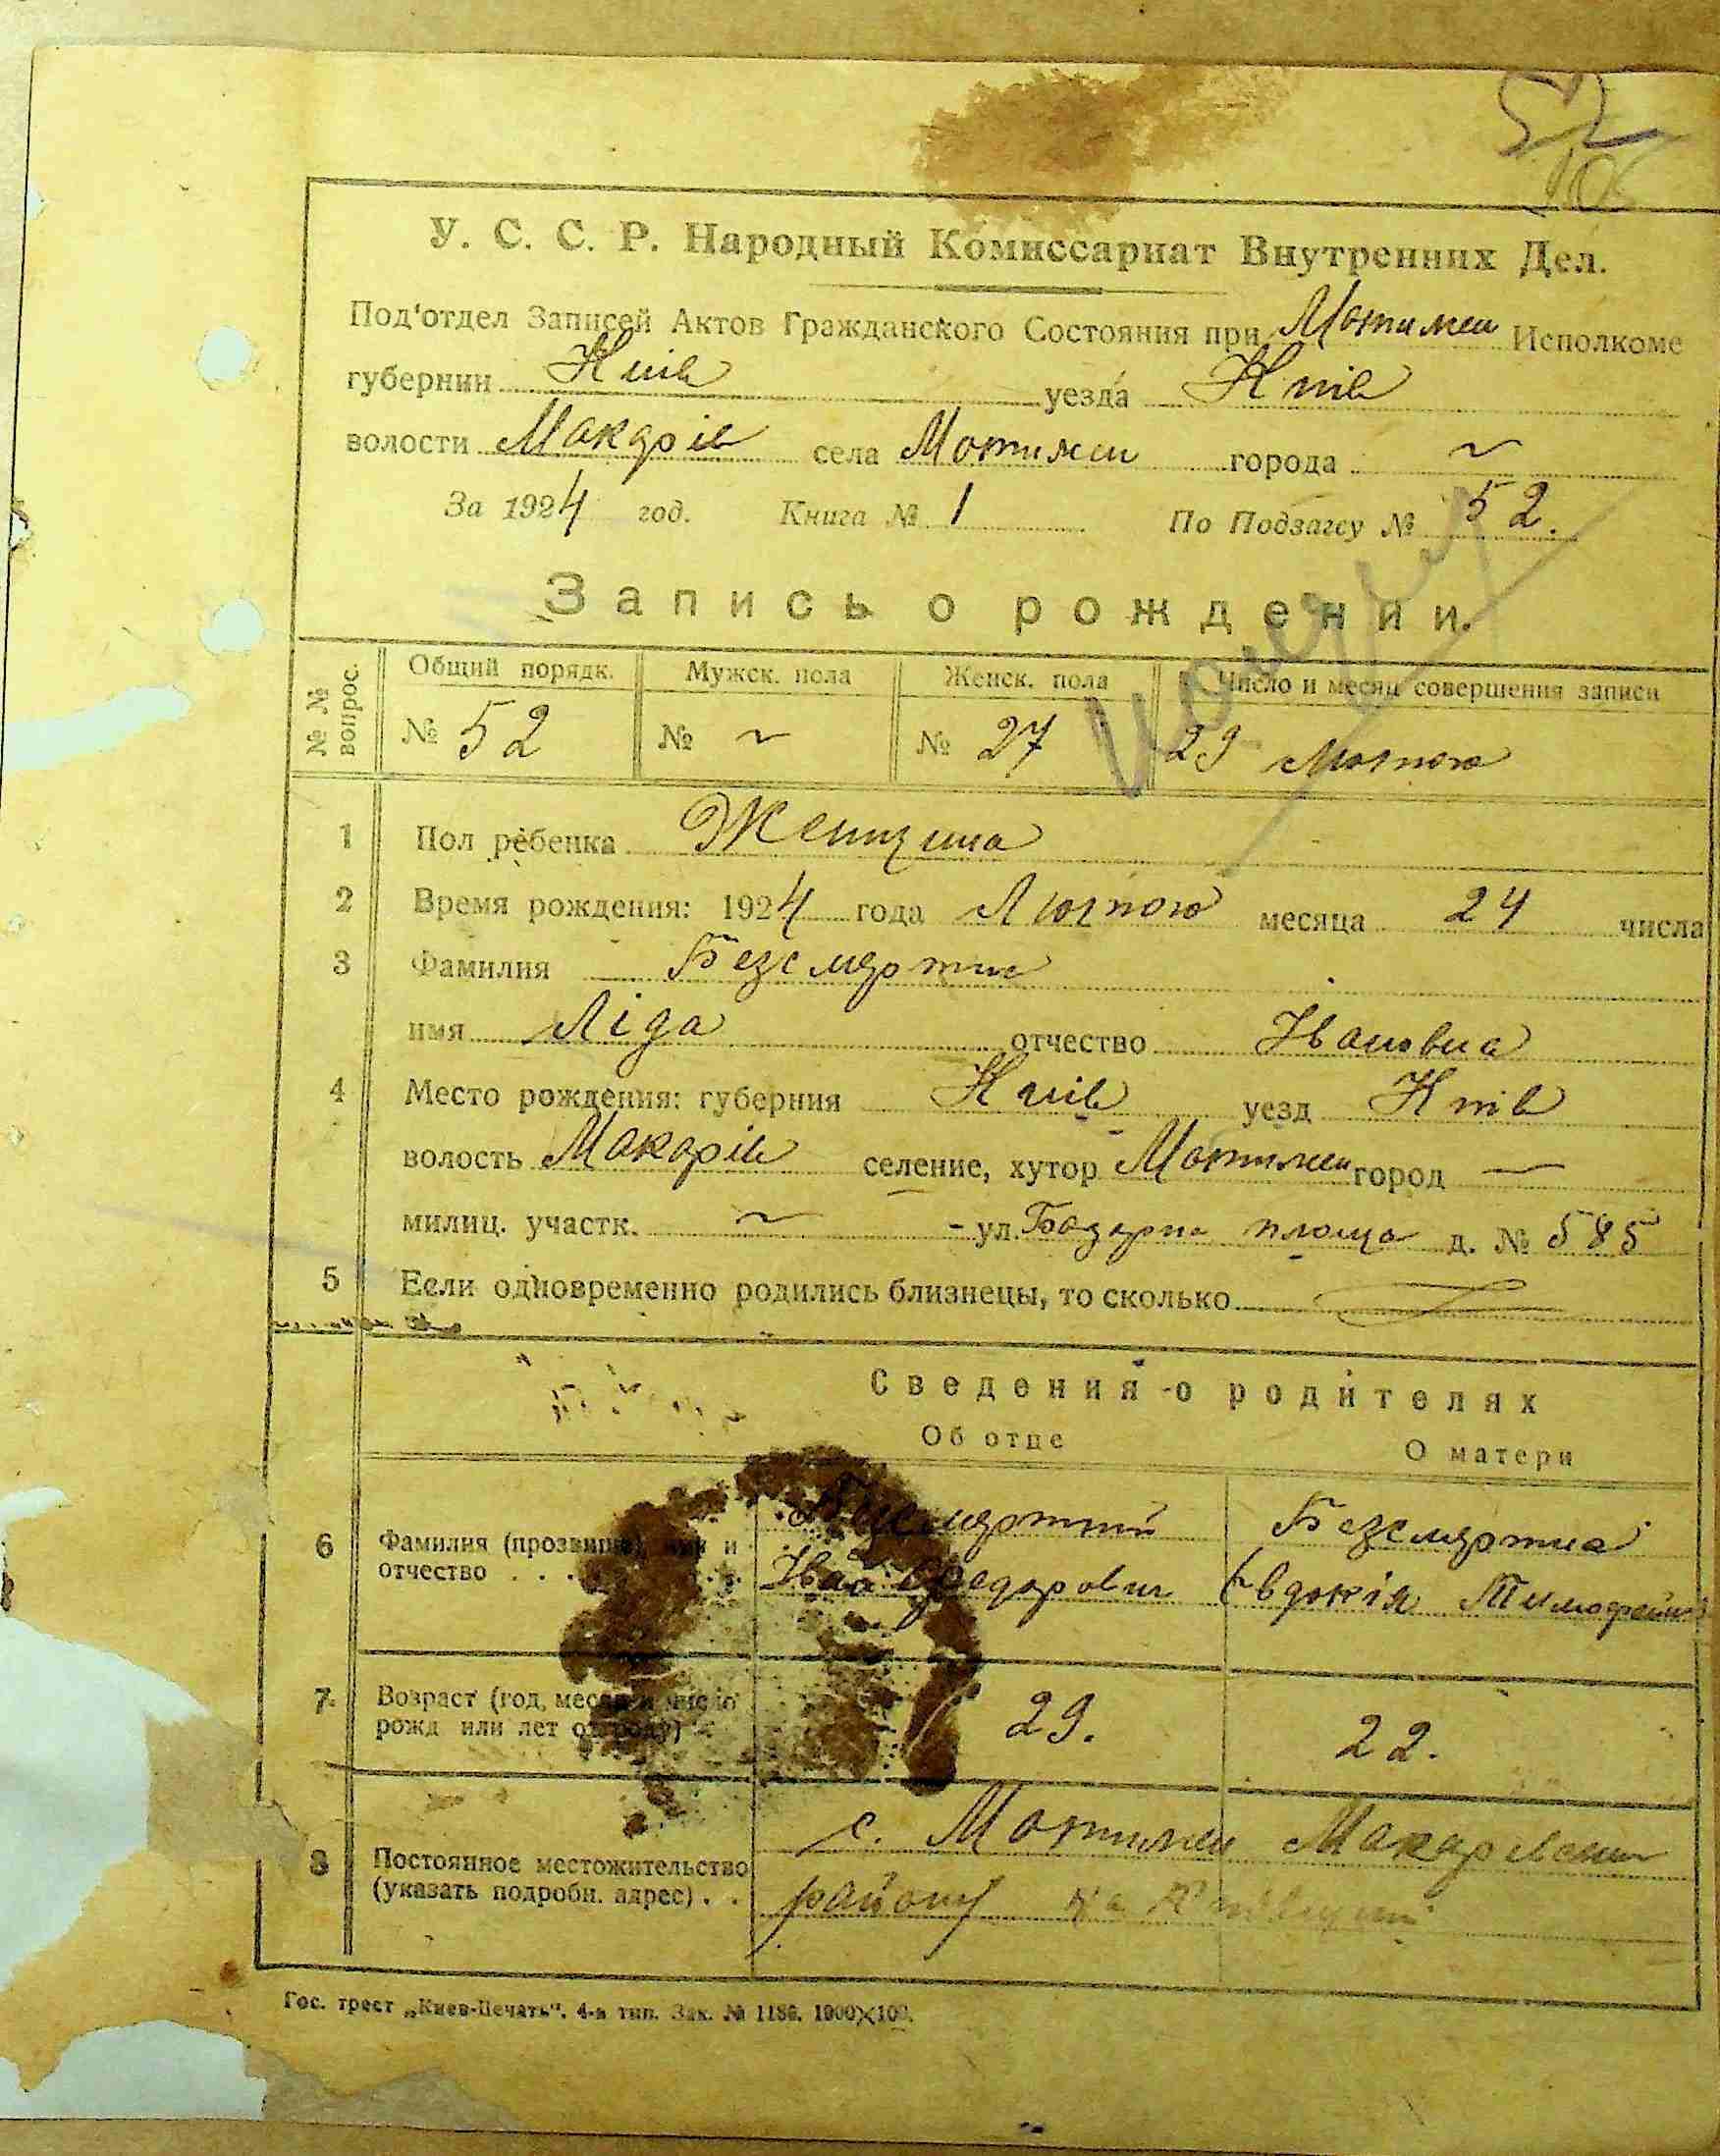 52
У. С. С. Р. Народный Комиссариат Внутренних Дел.
Под'отдел Записей Актов Гражданского Состояния при Мотижен Исполкоме
губернии Київ уезда Київ
волости Макарів села Мотижен города ~
За 1924 год. Книга № 1 По Подзагсу № 52.
Запись о рождении.
№ № вопрос. Общий порядк. Мужск. пола Женск. пола Число и месяц совершения записи
№ 52 № ~ № 27 29 Лютого
1 Пол ребенка Женщина
2 Время рождения: 1924 года Лютого месяца 24 числа
3 Фамилия Безсмертна
имя Ліда отчество Івановна
4 Место рождения: губерния Київ уезд Київ
волость Макарів селение, хутор Мотижен город —
милиц. участк. ~ - ул. Базарна площа д. № 585
5 Если одновременно родились близнецы, то сколько
Сведения о родителях
Об отце О матери
6 Фамилия (прозвище), имя и отчество . . . Безсмертний Безсмертна
Іван Федорович Євдокія Тимофеівна
7 Возраст (год, месяц и число рожд или лет от роду) 29. 22.
8 Постоянное местожительство (указать подробн. адрес) . . с. Мотижен Макарівськ
району на Київщині
Гос. трест „Киев-Печать“. 4-я тип. Зак. № 1186. 1000×100.